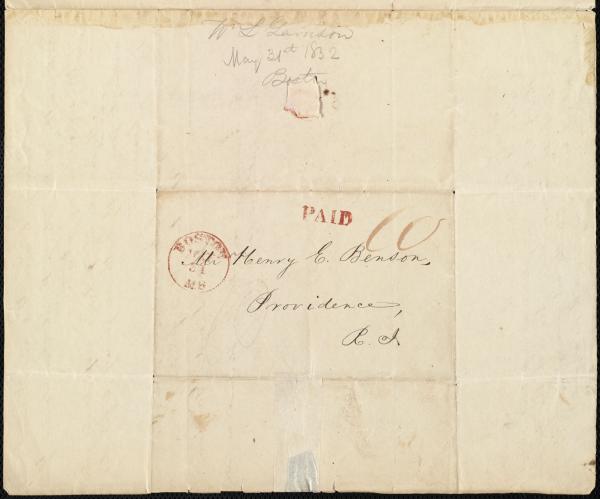 Wm L Garrison
May 31st 1832
Boston
PAID
10
BOSTON
31
MS
Mr Henry E. Benson,
Providence,
R. I